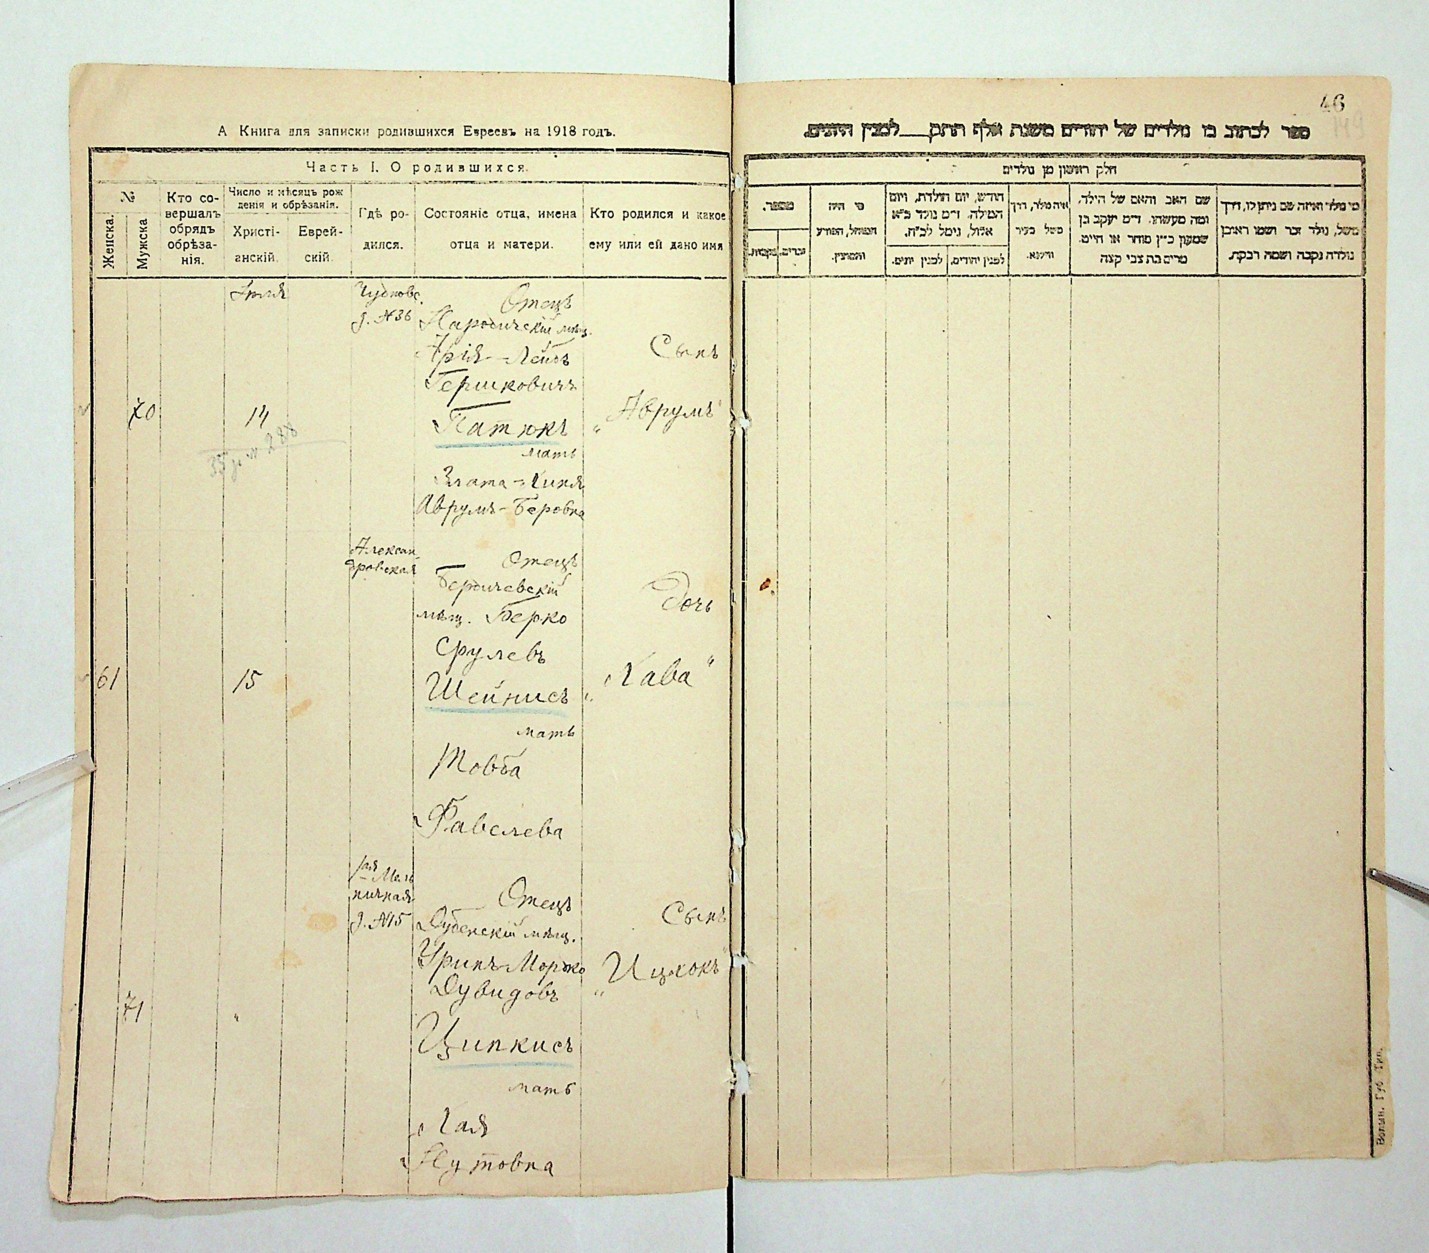 А Книга для записки родившихся Евреевъ на 1918 годъ.
Часть I. О родившихся.
№
Женска.
Мужска
Кто со-
вершалъ
обрядъ
обрѣза-
нія.
Число и мѣсяцъ рож
денія и обрѣзанія.
Христі-
анскій.
Еврей-
скій.
Гдѣ ро-
дился.
Состояніе отца, имена
отца и матери.
Кто родился и какое
ему или ей дано имя
Іюля
Чудновс.
д. №36
Отецъ
Народичскій мѣщ.
Арія-Лейбъ
Гершковичъ
Патюкъ
мать
Злата-
Аврумъ-Беровна
Сынъ
„Аврумъ“
70
14
Алексан
дровская
Отецъ
Бердичевскій
мѣщ. Берко
Срулевъ
Шейнисъ
мать
Товба
Фавелева
Дочь
„Хава“
61
15
д. №15
Отецъ
Дубенскій мѣщ.
Дувидовъ
Ципкисъ
мать
Хая
Нутовна
Сынъ
„Ицхокъ“
71
"
46
ספר לכתוב בו נולדים של יהודים משנת אלף תתק___ למנין היונים.
חלק ראשון מן נולדים
מספר.
נקבות.
זכרים.
מי היה
המוהל, הפורע
והמוצץ.
חודש, יום הולדת, ויום
המילה. ד״מ נולד כ״א
אלול, נימל לכ״ח.
למנין יונים.
למנין יהודים.
איה נולד, דרך
משל בעיר
ווילנא.
שם האב והאם של הילד,
ומה מעשהו. ד״מ יעקב בן
שמעון כ״ץ סוחר או חייט.
מרים בת צבי קצה
מי נולד ואיזה שם ניתן לו, דרך
משל, נולד זכר ושמו ראובן
נולדה נקבה ושמה רבקה.
Волын. Губ. Тип.